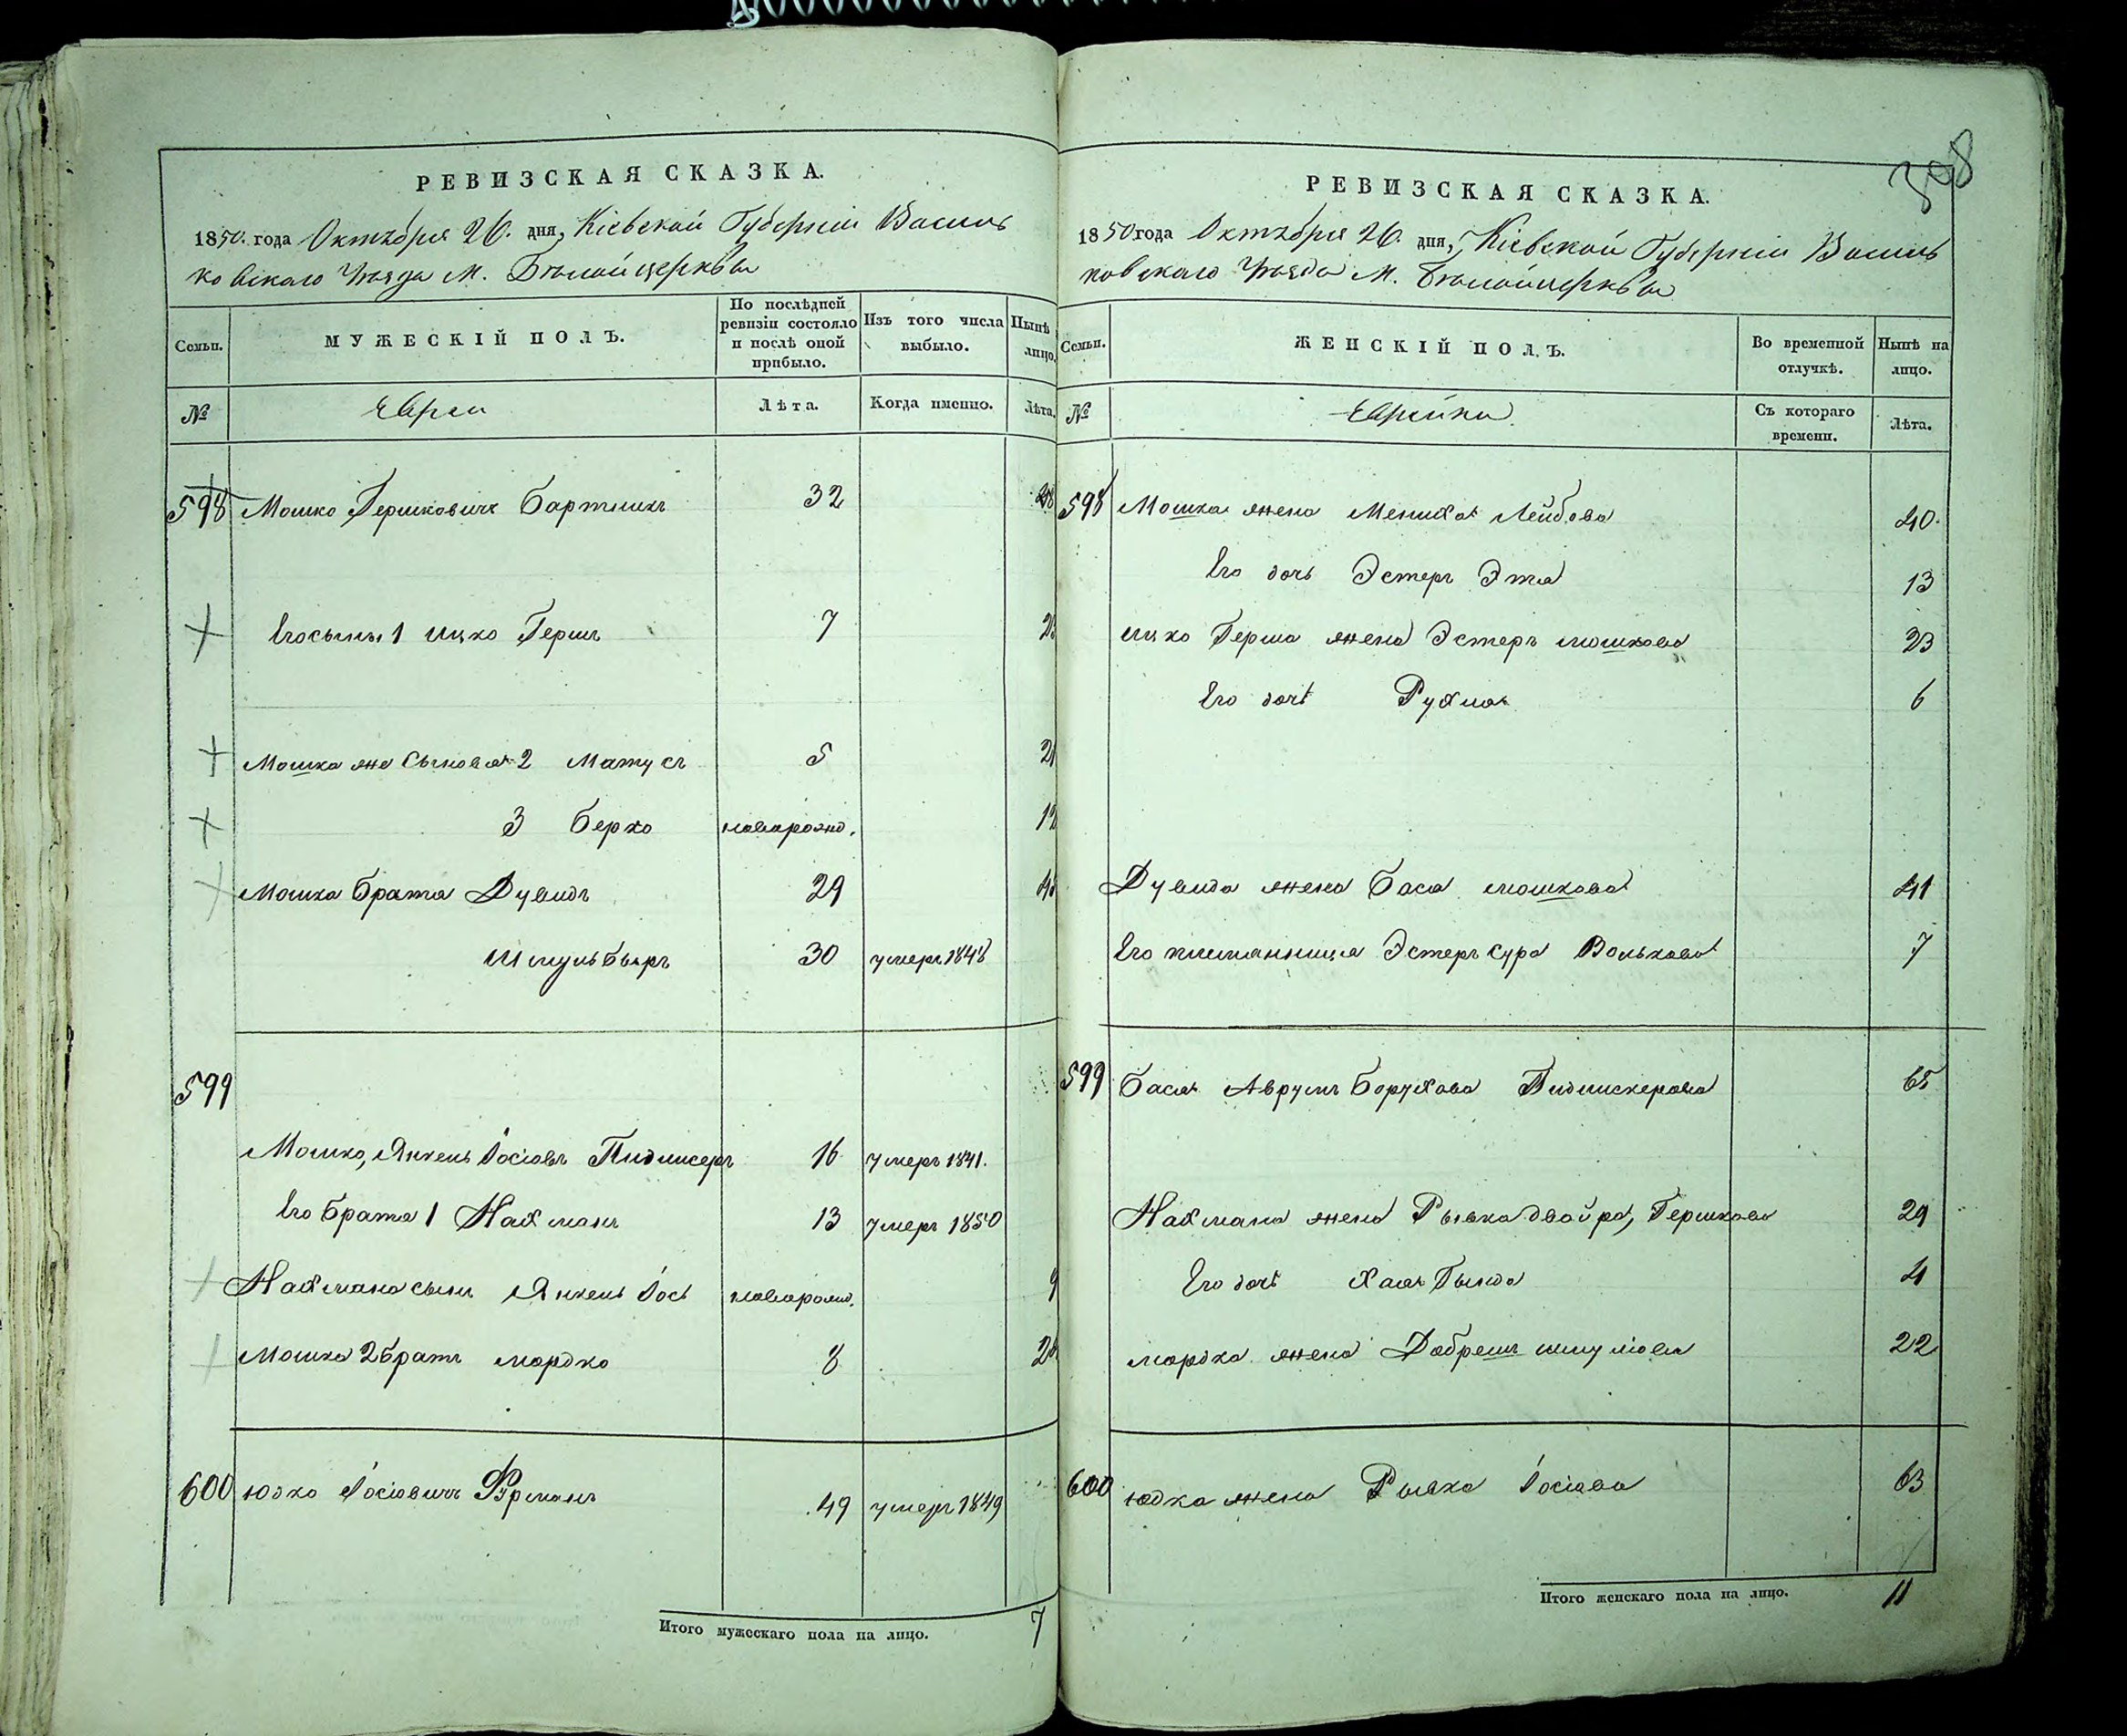 РЕВИЗСКАЯ СКАЗКА.
1850. года Октября 26. дня, Кіевской Губерніи Василь
ковскаго Уѣзда М. Бѣлойцеркви
Семьи.
МУЖЕСКІЙ ПОЛЪ.
По послѣдней ревизіи состояло и послѣ оной прибыло.
Изъ того числа выбыло.
Нынѣ лицо.
№
Евреи
Лѣта.
Когда именно.
Лѣта.
598 Мошко Гершковичъ Бартникъ 32
Его сыны 1 Ицко Гершъ 7
Мошка же Сыновья 2 Матусъ 5
3 Берко новорожд.
Мошка брата Дувидъ 29
Шмуль Бъеръ 30 умеръ 1848
599
Мошко, Янкель Іосіовъ Пидмисеръ 16 умеръ 1841.
Его брата 1 Нахманъ 13 умеръ 1850
Нахмана сынъ Янкель Іось новорожд. 9
Мошка 2 братъ мордко 8
600 Юдко Іосіовичъ Фурманъ 49 умеръ 1849
Итого мужескаго пола на лицо. 7
РЕВИЗСКАЯ СКАЗКА.
1850 года Октября 26. дня, Кіевской Губерніи Василь
ковскаго Уѣзда М. Бѣлойцеркви
Семьи.
ЖЕНСКІЙ ПОЛЪ.
Во временной отлучкѣ.
Нынѣ на лицо.
№
Еврейки
Съ котораго времени.
Лѣта.
598 Мошка жена Мениха Лейбова 40.
Его дочь Эстеръ Этя 13
Ицко Герша жена Эстеръ мошкова 23
Его дочь Рухля 6
Дувида жена Бася мошкова 41
Его племянница Эстеръ Сура Волькова 7
599 Бася Аврумъ Борухова Пидмискерова 65
Нахмана жена Рывка Двойра, Гершкова 29
Его дочь Хая Гында 4
мордка жена Добрешъ шмулiова 22
600 Юдка жена Рывка Іосіова 63
Итого женскаго пола на лицо. 11